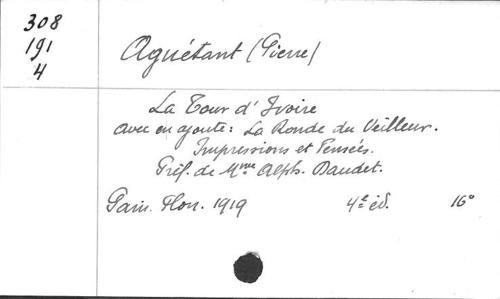 308
191
4
Aguétant (Pierre)
La Tour d'Ivoire
avec en ajoute: La Ronde du Veilleur.
Impressions et Pensées.
Préf. de Mme Alph. Daudet.
Paris. Plon. 1919 4e éd. 16°